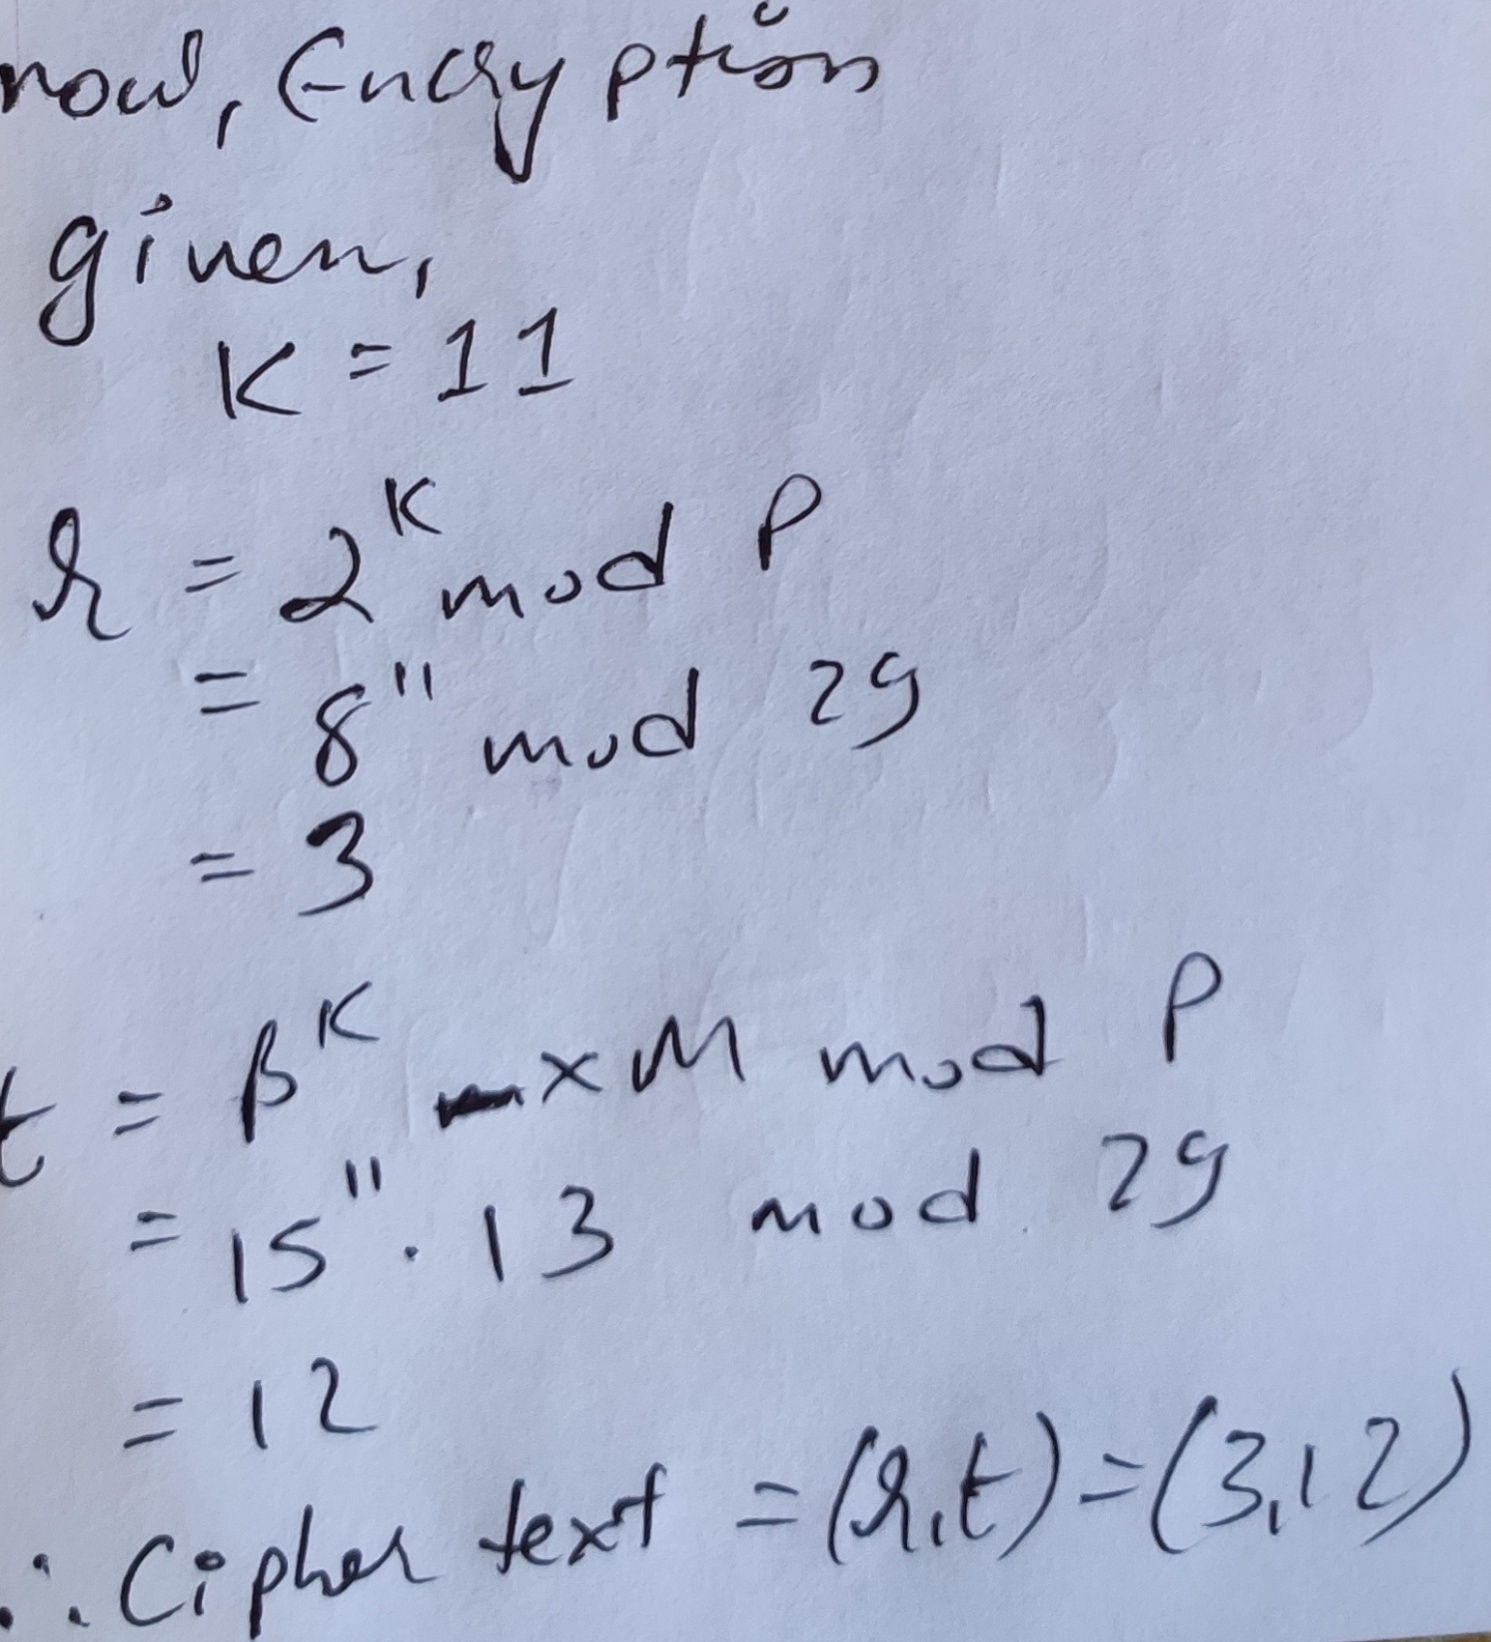 now, Encryption
given,
K = 11
r = 2^K mod P
= 8^11 mod 29
= 3
t = β^K × M mod P
= 15^11 . 13 mod 29
= 12
∴ Cipher text = (r,t) = (3,12)